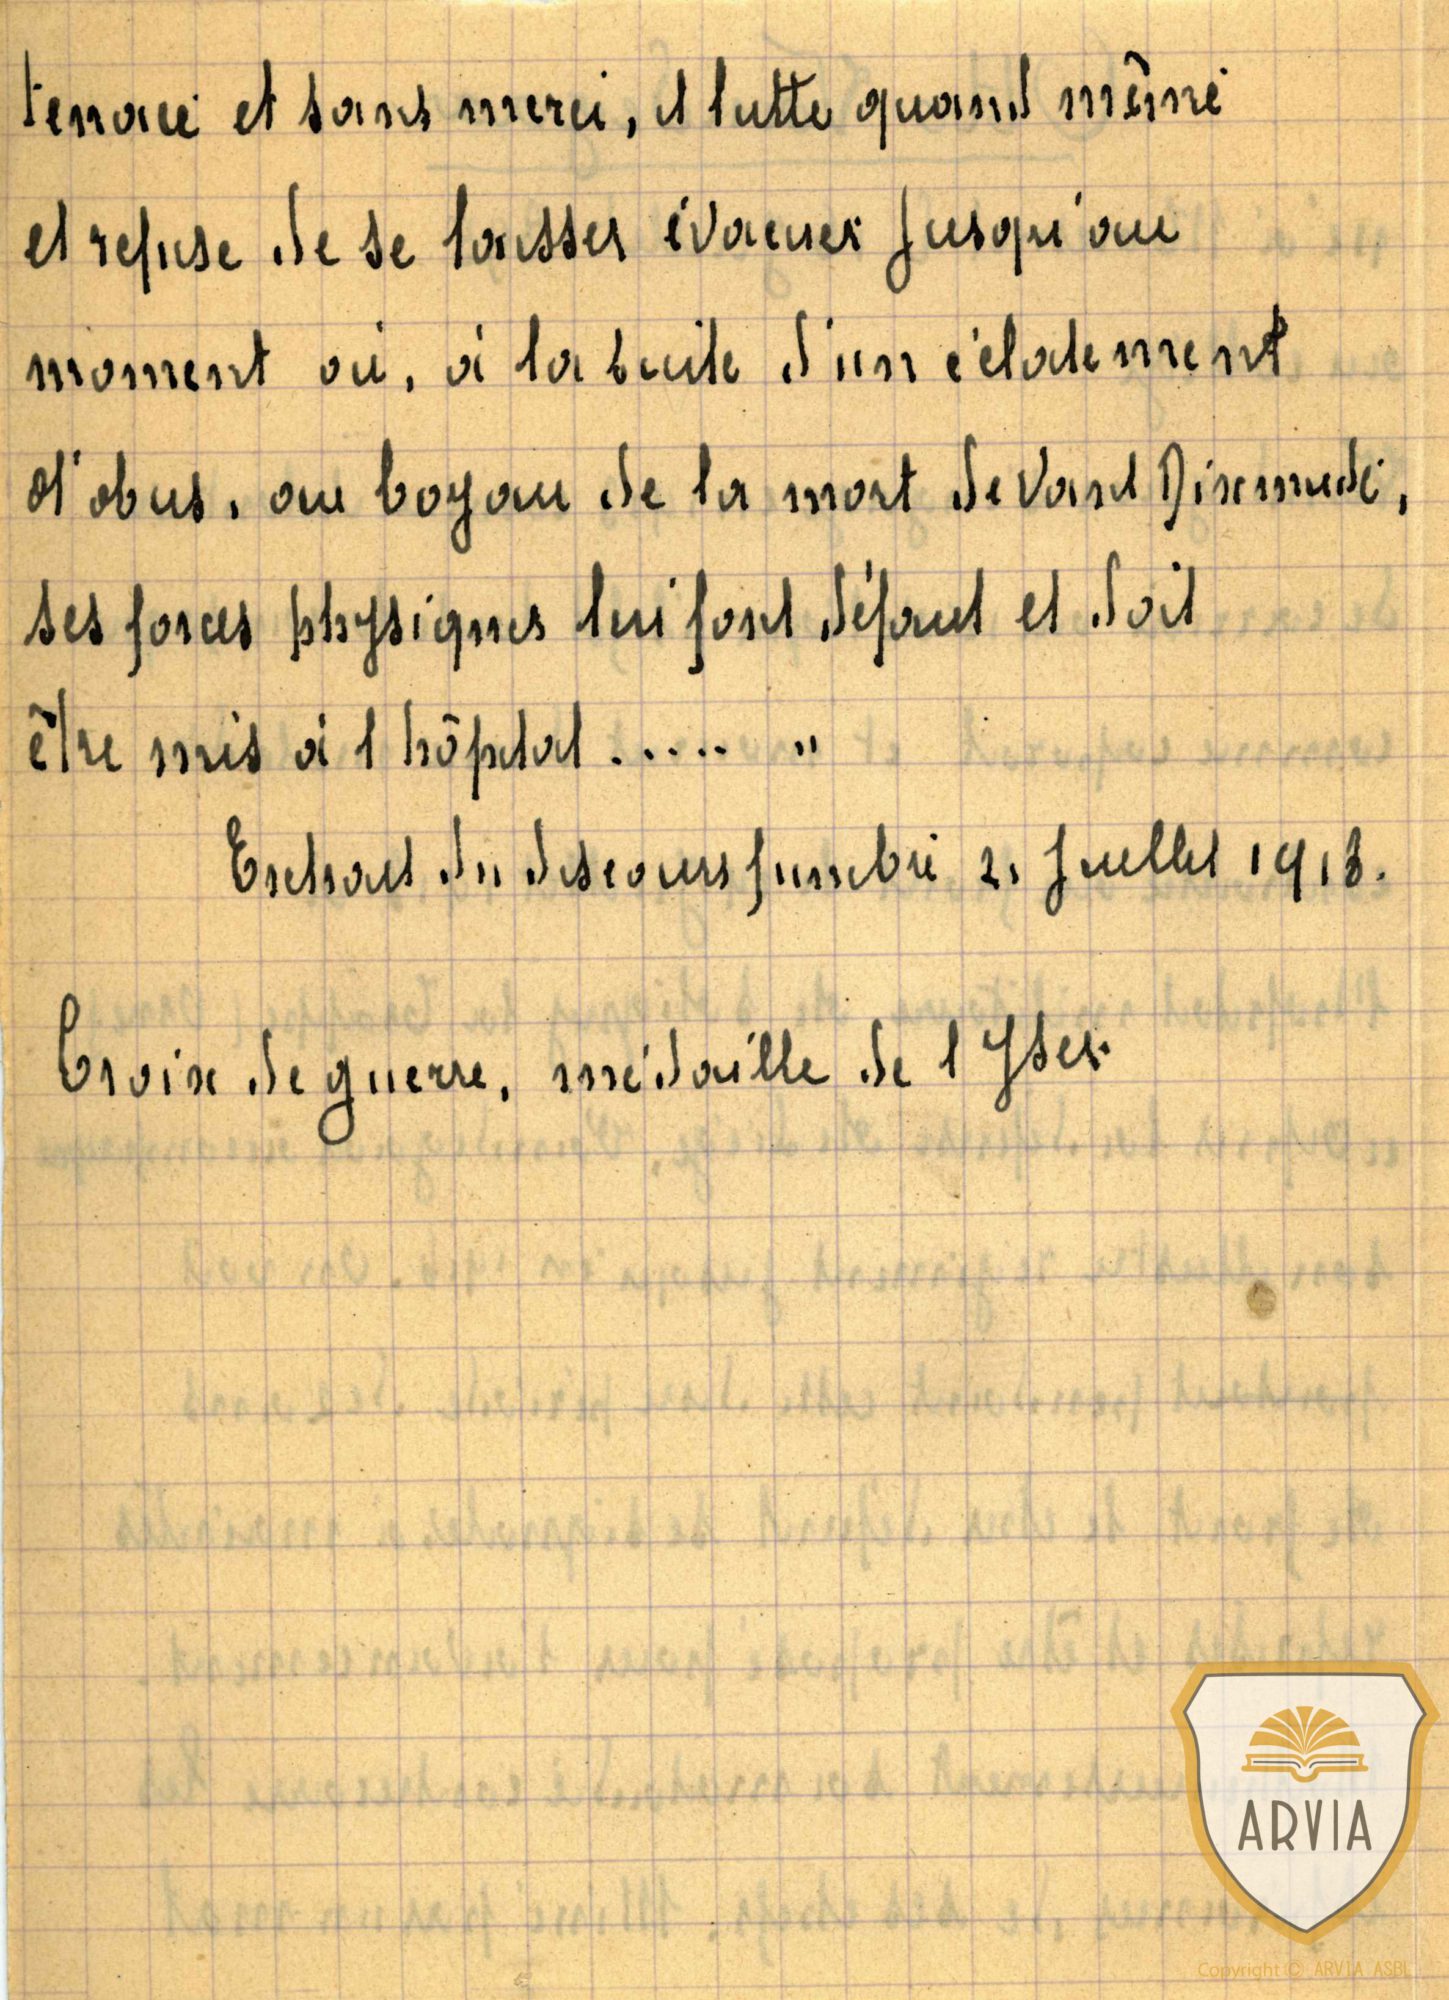 tenace et sans merci, il lutte quand même
et refuse de se laisser évacuer jusqu'au
moment où, à la suite d'un éclatement
d'obus, au boyau de la mort devant Dixmude,
ses forces physiques lui font défaut et doit
être mis à l'hôpital ..... "
Extrait du discours funèbre 21 Juillet 1918.
Croix de guerre, médaille de l'Yser.
ARVIA
Copyright © ARVIA ASBL